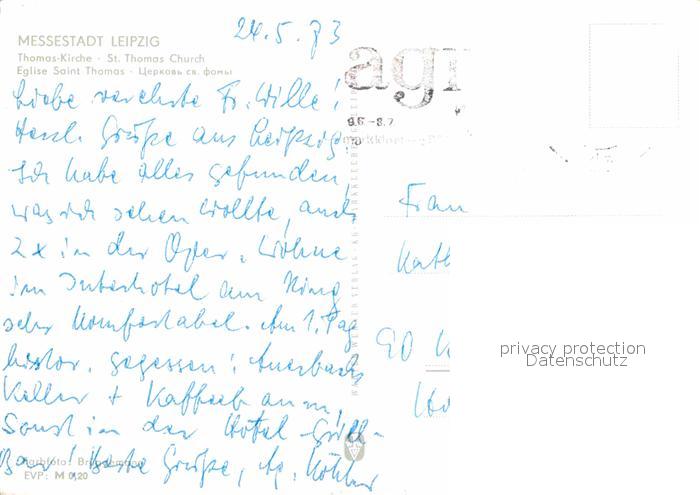 24.5.73
MESSESTADT LEIPZIG
Thomas-Kirche · St. Thomas Church
Eglise Saint Thomas · Церковь св. фомы
Liebe verehrte Fr. Wille!
Herzl. Grüße aus Leipzig
Ich habe alles gefunden,
was ich sehen wollte, auch
2x in der Oper. Wohne
im Interhotel am Ring
sehr komfortabel. Am 1. Tag
histor. gegessen: Auerbachs
Keller + Kaffeebaum,
Sonst in der Hotel-Grill-
Bar! Beste Grüße,
Farbfoto:
EVP: M 0,20
agr
9.6.-8.7.
Frau
Kath
privacy protection
Datenschutz